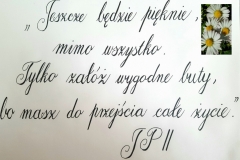 „Jeszcze będzie pięknie,
mimo wszystko.
Tylko załóż wygodne buty,
bo masz do przejścia całe życie.”
JP II